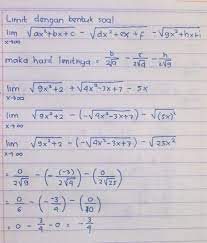 Limit dengan bentuk soal
lim √ax²+bx+c - √dx²+ex+f - √gx²+hx+i
x→∞
maka hasil limitnya = b/2√a - e/2√d - h/2√g
lim √9x²+2 + √4x²-3x+7 - 5x
x→∞
lim √9x²+2 - (-√4x²-3x+7) - √(5x)²
x→∞
lim √9x²+2 - (-√4x²-3x+7) - √25x²
x→∞
= 0/2√9 - (-(-3)/2√4) - (0/2√25)
= 0/6 - (-3/4) - (0/10)
= 0 - 3/4 - 0 = -3/4